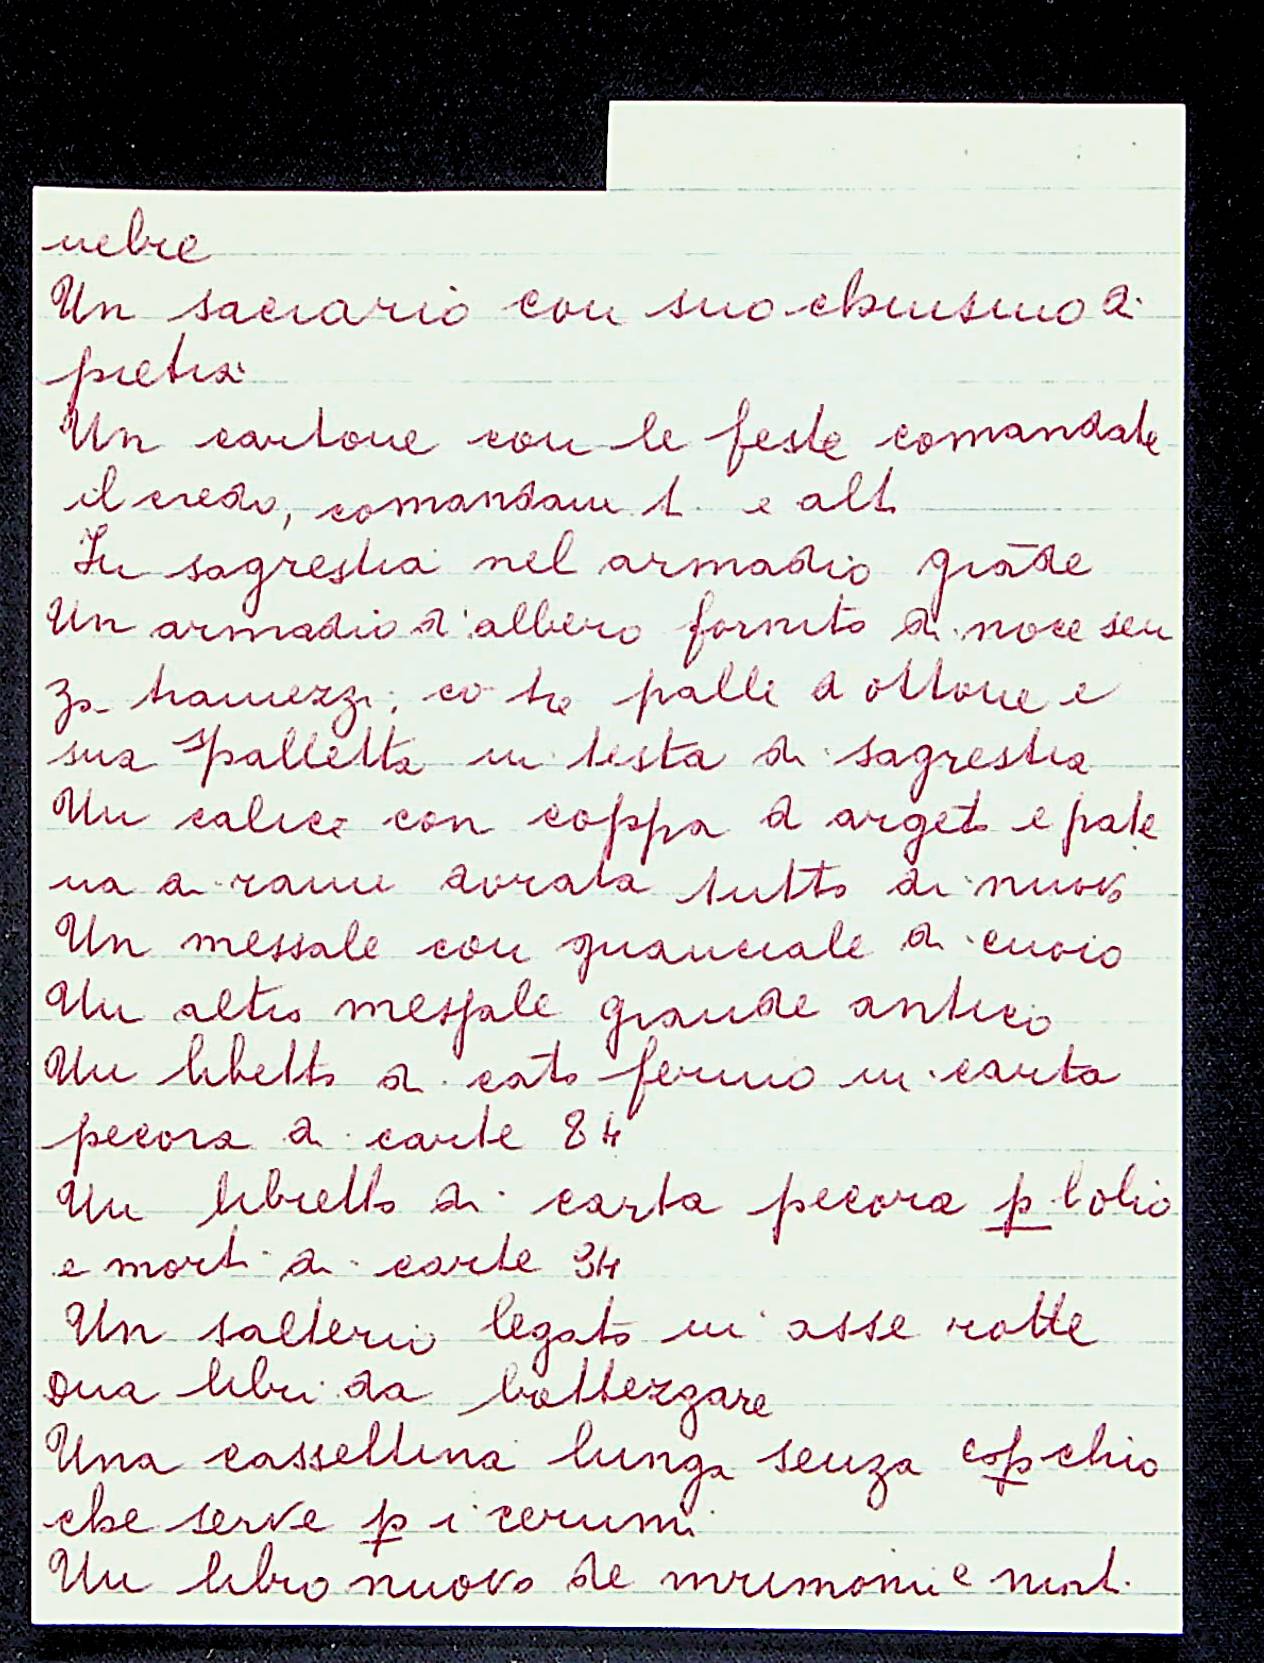 nebre
Un sacrario con suo chiusino di
pietra
Un cartone con le feste comandate
il credo, comandam ti e alt
In sagrestia nel armadio grāde
Un armadio d'albero fornito di noce sen
za tramezzi, co tre palle d ottone e
sua spalletta in testa di sagrestia
Un calice con coppa d argēto e pate
na di rame dorata tutto di nuovo
Un messale con guanciale di cuoio
Un altro messale grande antico
Un libetto di cāto fermo in carta
pecora di carte 84
Un libretto di carta pecora p lolio
e morti di carte 34
Un salterio legato in asse rotte
Dua libri da battezzare
Una cassettina lunga senza copchio
che serve p i cerumi
Un libro nuovo de mrimonii e mort.